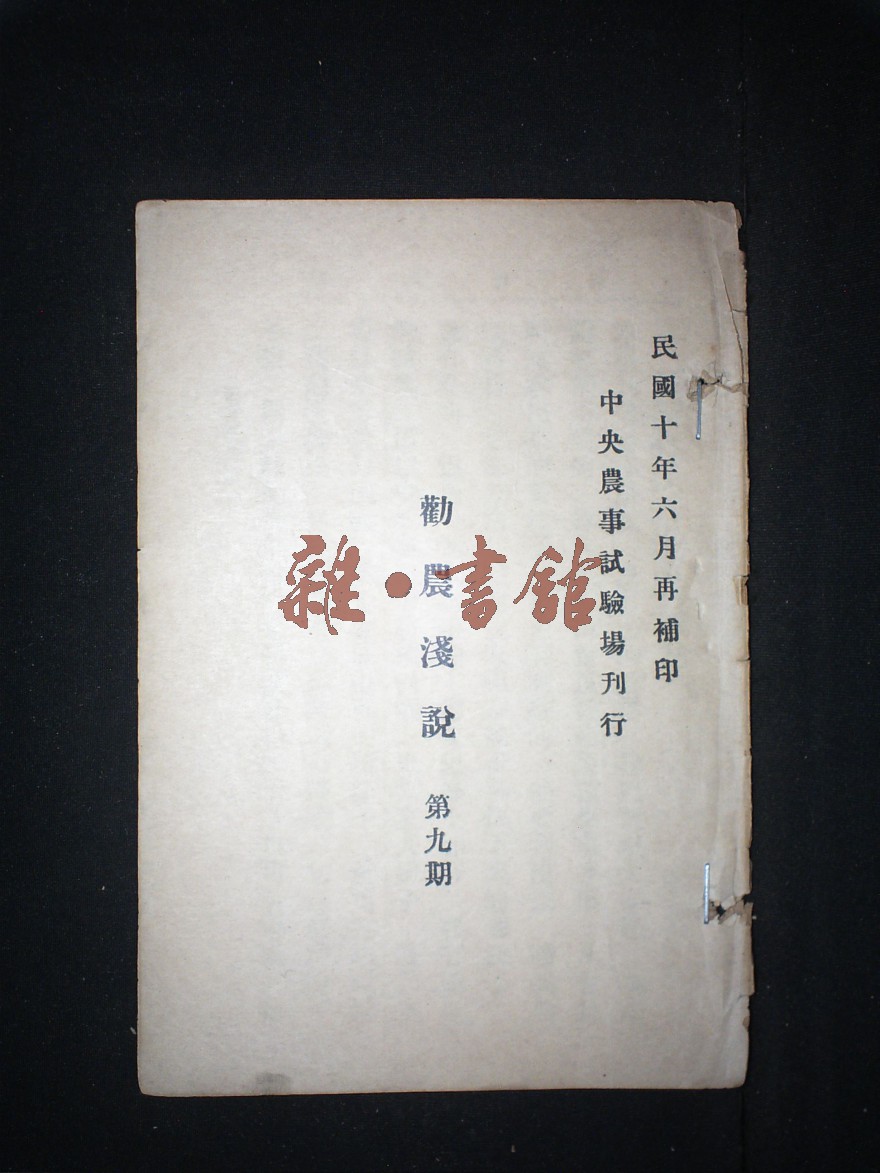 民國十年六月再補印
中央農事試驗場刊行
勸農淺說 第九期
雜·書館